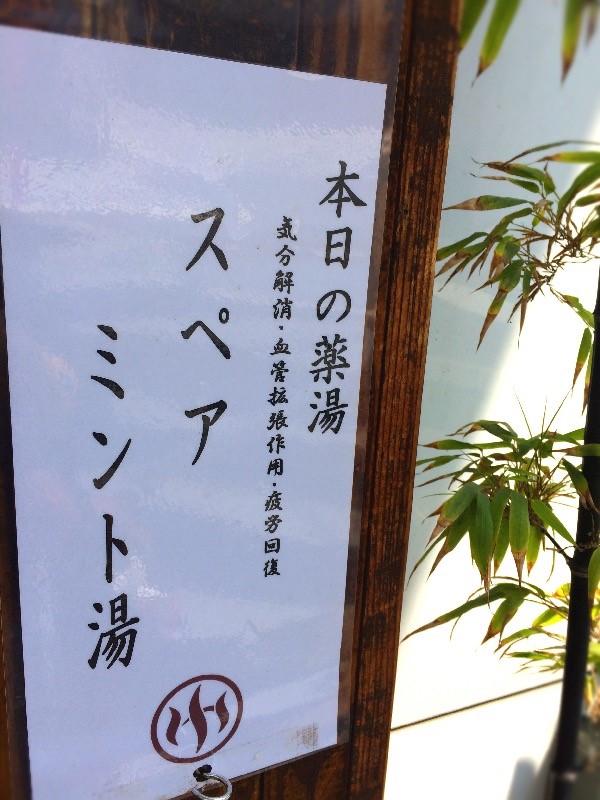 本日の薬湯
気分解消・血管拡張作用・疲労回復
スペア
ミント湯